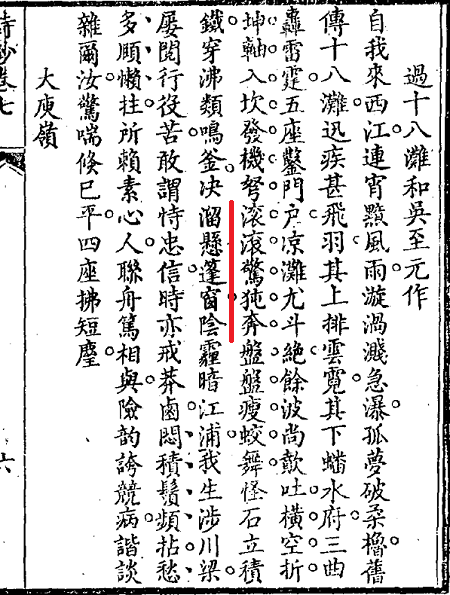 過十八灘和吳至元作
自我來西江連宵黲風雨漩渦濺急瀑孤夢破柔櫓舊
傳十八灘迅疾甚飛羽其上排雲霓其下蟠水府三曲
轟雷霆五座鑿門戶凉灘尤斗絕餘波尚歕吐橫空折
坤軸入坎發機弩滚滚驚㹠奔盤盤瘦蛟舞怪石立積
鐵穿沸類鳴釜决溜懸蓬窗陰霾暗江浦我生涉川梁
屢閱行役苦敢謂恃忠信時亦戒莽鹵悶積鬚頻拈愁
多頤懶拄所賴素心人聯舟篤相與險韵誇競病諧談
雜爾汝驚喘倏已平四座拂短麈
大庾嶺
詩鈔卷七
六